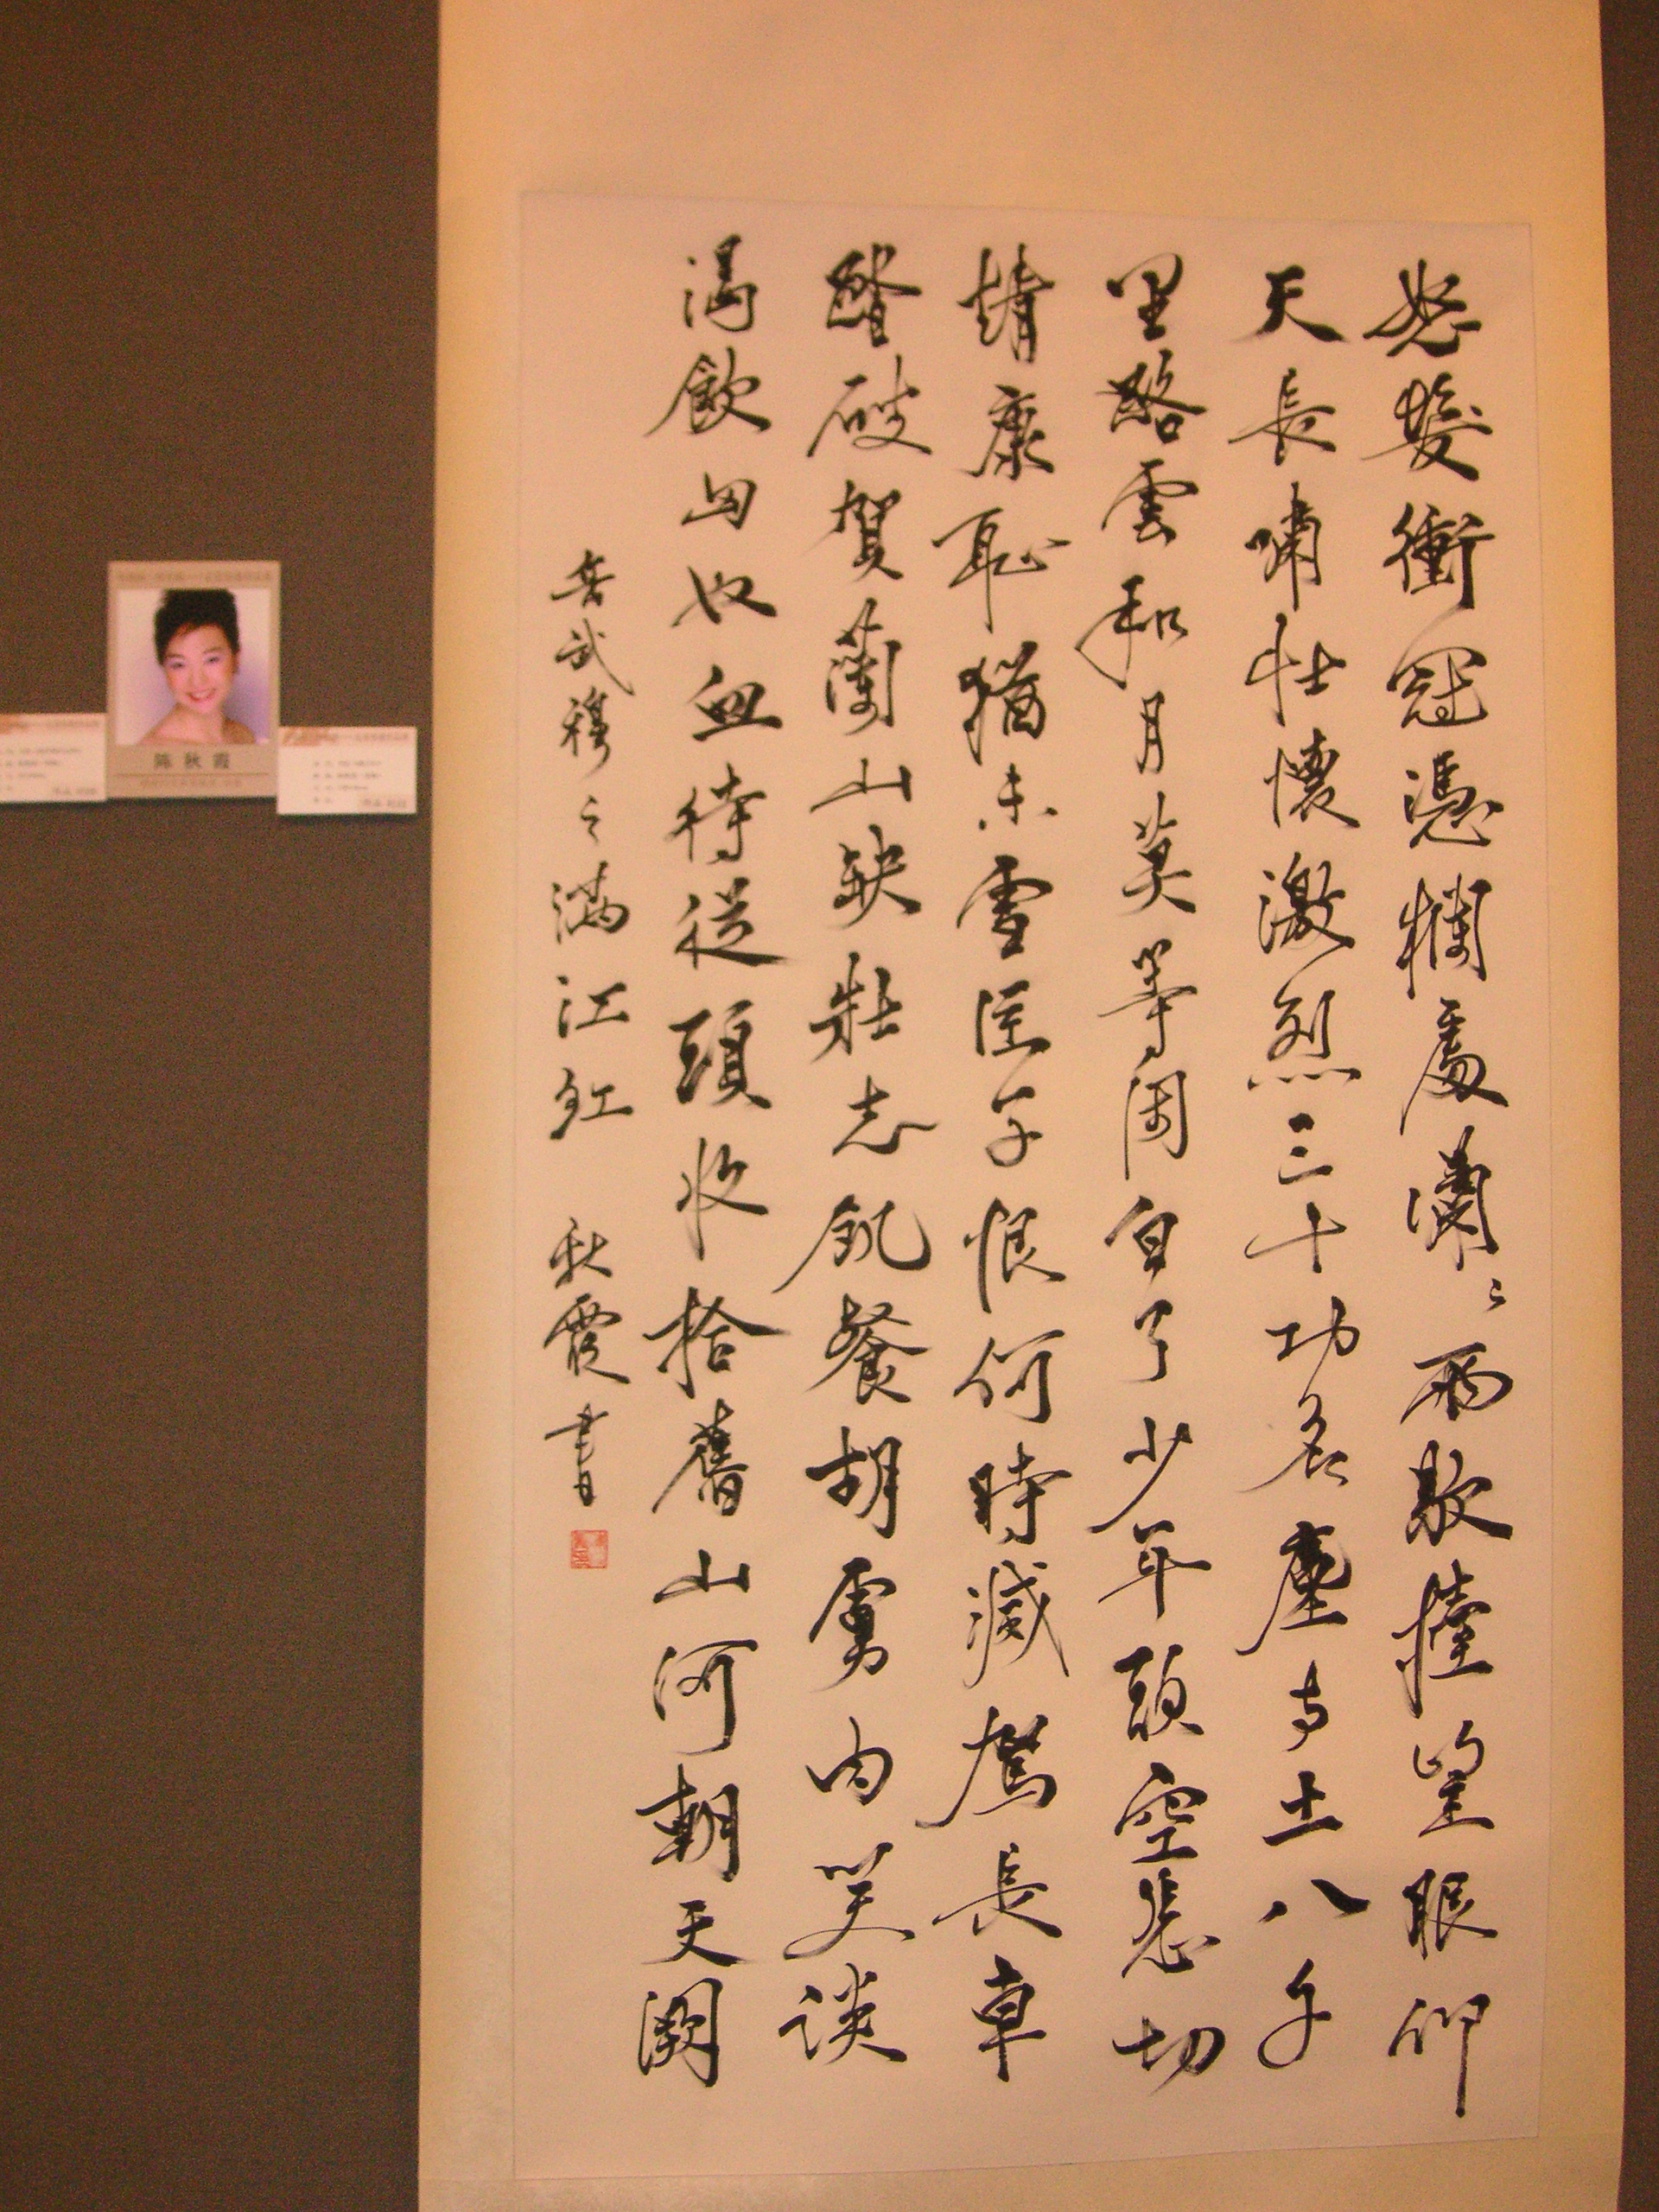 怒髮衝冠憑欄處瀟〻雨歇擡望眼仰
天長嘯壯懷激烈三十功名塵与土八千
里路雲和月莫等閑白了少年頭空悲切
靖康耻猶未雪臣子恨何時滅駕長車
踏破賀蘭山缺壯志飢餐胡虜肉笑談
渴飲匈奴血待從頭收拾舊山河朝天闕
岳武穆之滿江紅 秋霞書
陈秋霞